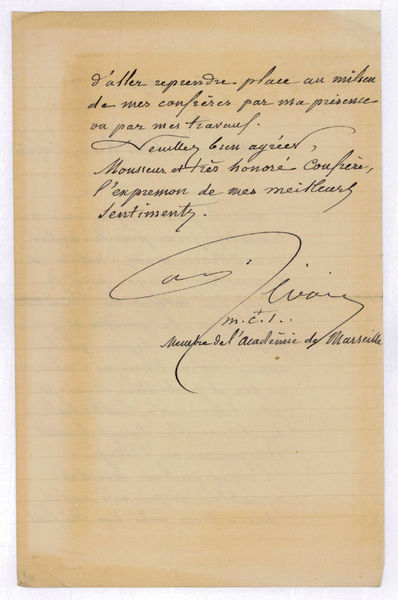 d'aller reprendre place au milieu
de mes confrères par ma présence
ou par mes travaux.
Veuillez bien agréer,
Monsieur et très honoré Confrère,
l'expression de mes meilleurs
sentiments.
m.c.t..
Membre de l'Académie de Marseille